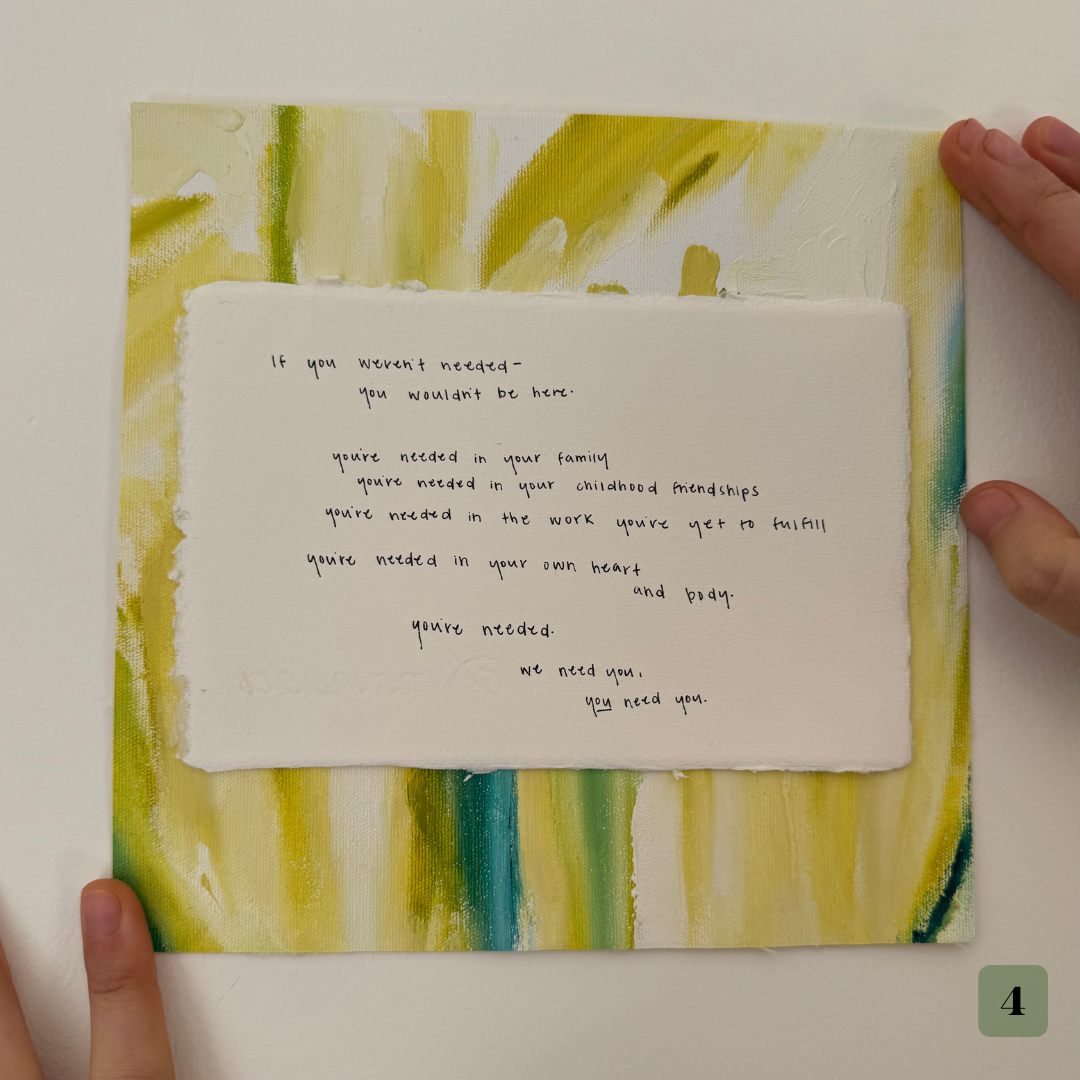 If you weren't needed-
you wouldn't be here.
you're needed in your family
you're needed in your childhood friendships
you're needed in the work you've yet to fulfill
you're needed in your own heart
and body.
you're needed.
we need you,
you need you.
4